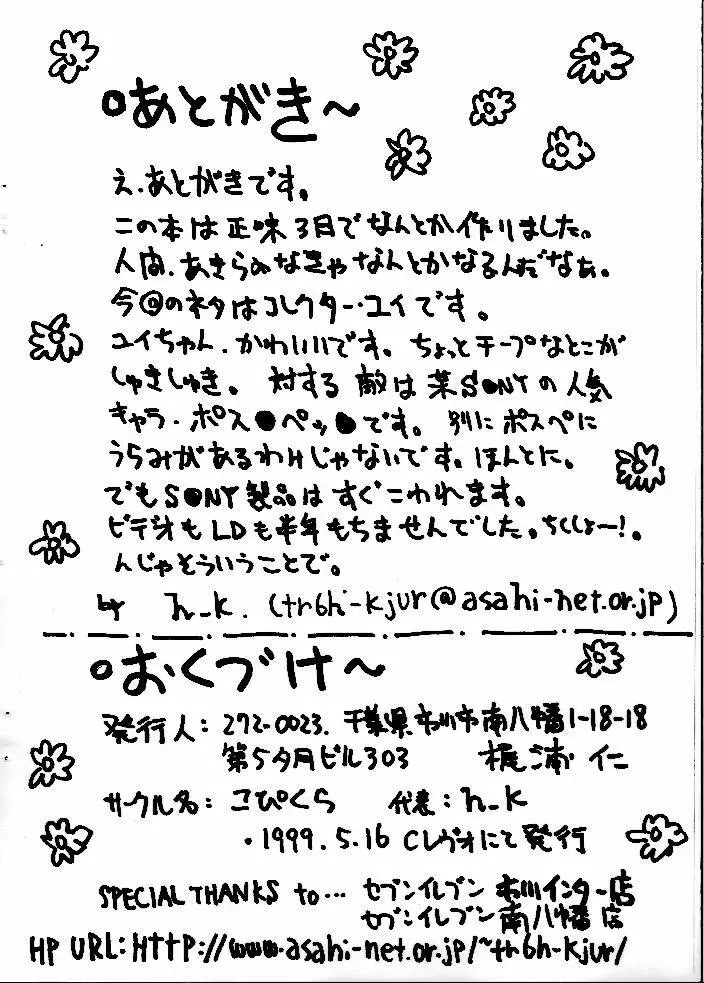 ○あとがき〜
え、あとがきです。
この本は正味3日でなんとか作りました。
人間、あきらめなきゃなんとかなるんだなぁ。
今回のネタはコレクター・ユイです。
ユイちゃん、かわいいです。ちょっとチープなとこが
しゅきしゅき。対する敵は某S●NYの人気
キャラ・ポス●ペッ●です。別にポスペに
うらみがあるわけじゃないです。ほんとに。
でもS●NY製品はすぐこわれます。
ビデオもLDも半年もちませんでした。ちくしょー!。
んじゃそういうことで。
by h_k. (tr6h-kjur@asahi-net.or.jp)
○おくづけ〜
発行人: 272-0023. 千葉県市川市南八幡1-18-18
第5夕月ビル303 梶浦 仁
サークル名: こぴくら 代表: h_k
・1999.5.16 Cレヴォにて発行
SPECIAL THANKS to… セブンイレブン 市川インター店
セブンイレブン 南八幡店
HP URL: HTTP://www.asahi-net.or.jp/~tr6h-kjur/